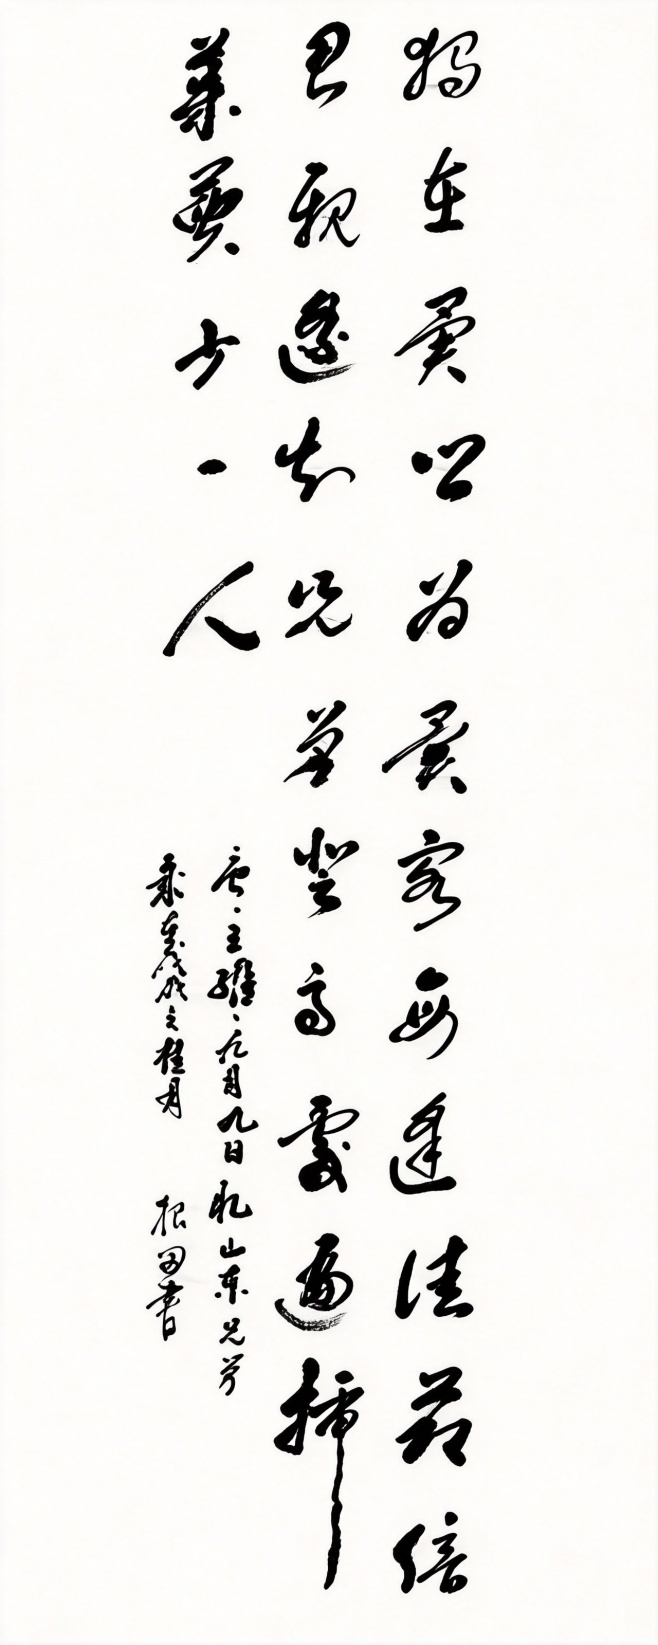 獨在異鄉为異客每逢佳節倍
思親遙知兄弟登高處遍插
茱萸少一人
唐·王維·九月九日憶山東兄弟
戊戌之桂月 根田書